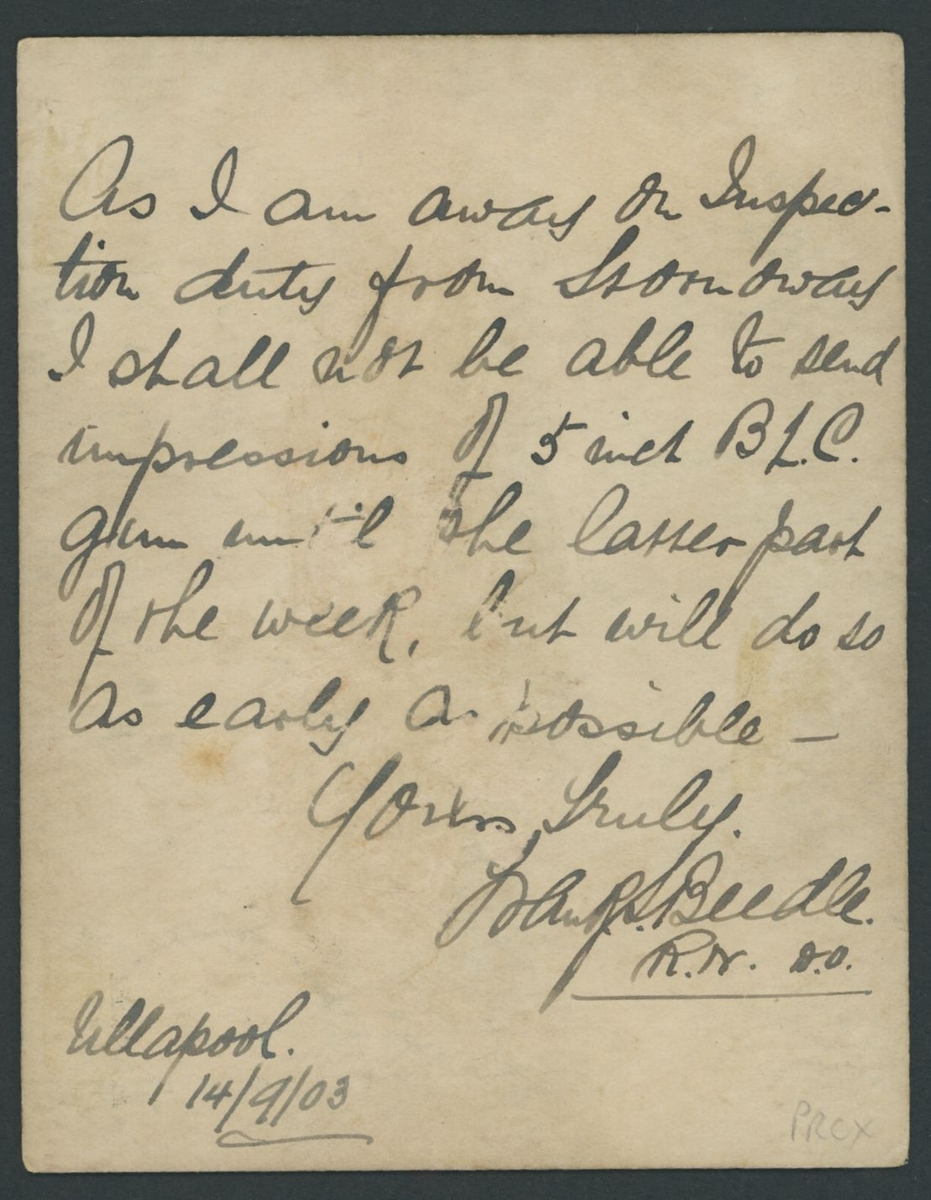 As I am away on Inspec-
tion duty from Stornoway
I shall not be able to send
impressions of 5 inch B.L.C.
gun until the latter part
of the week, but will do so
as early as possible —
Yours truly.
Frank S. Beedle.
R.N. D.O.
Ullapool.
14/9/03
PRCX